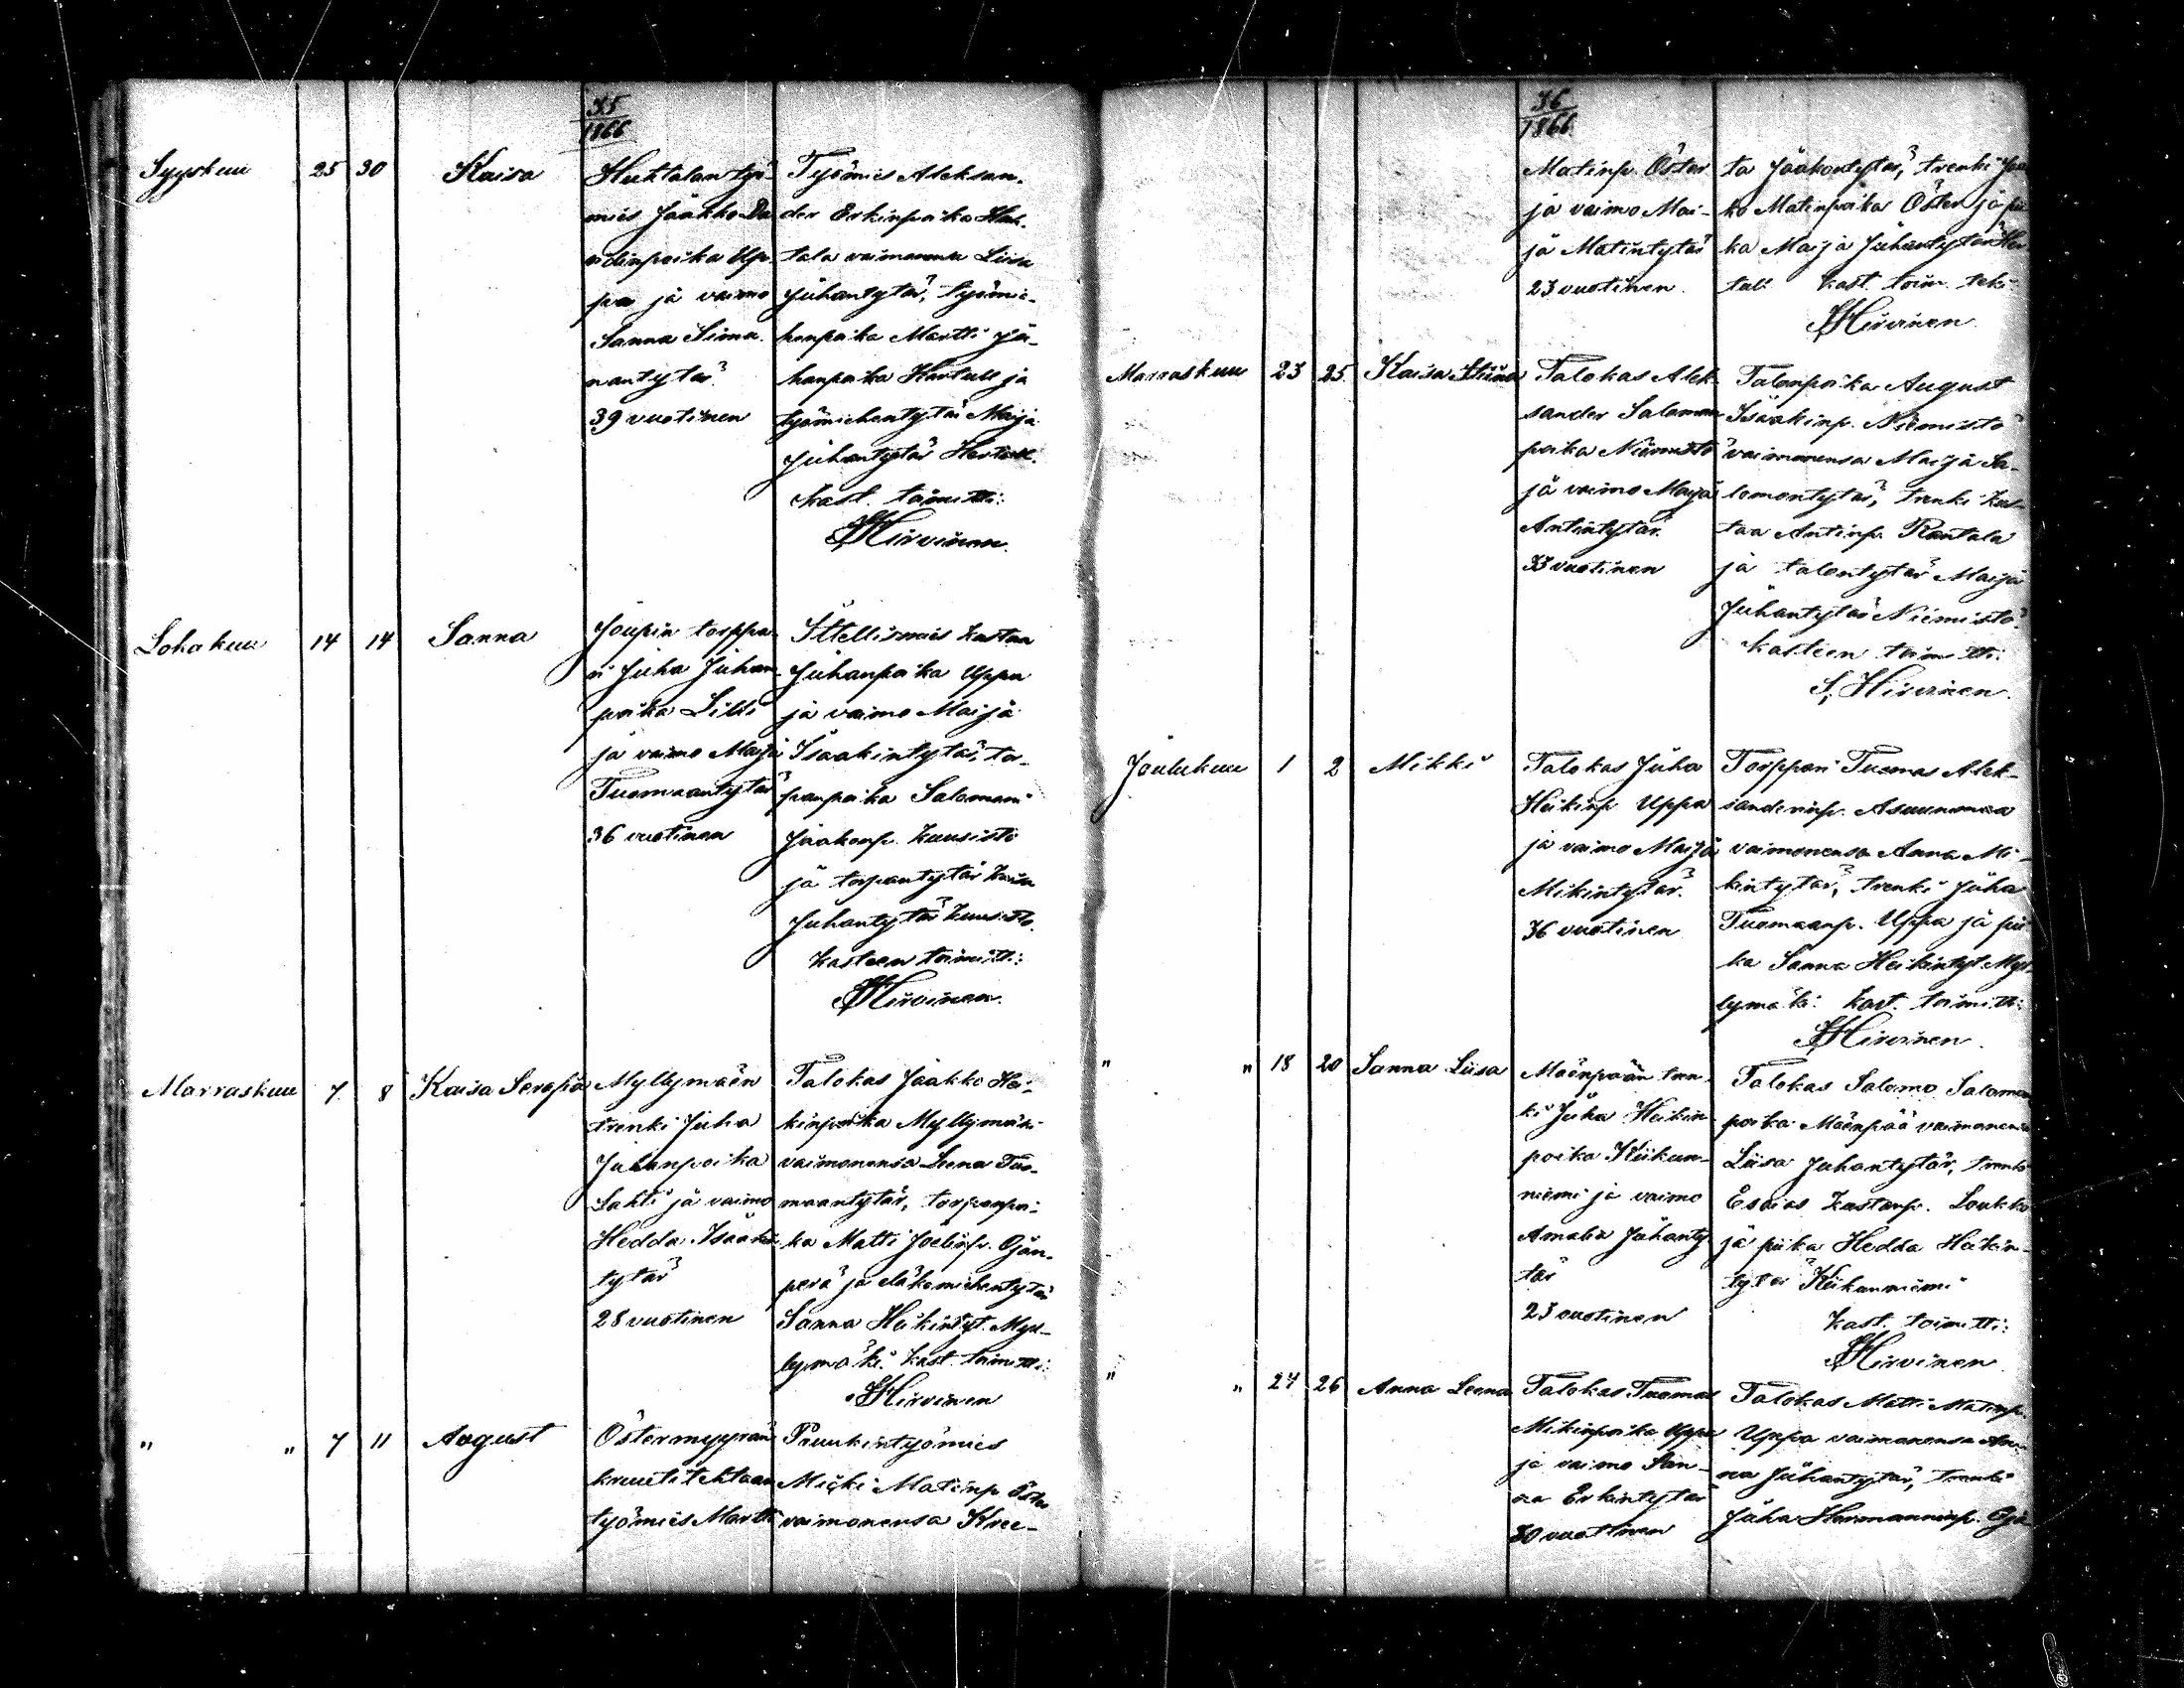 35
1866
Syyskuu 25 30 Kaisa
Huhtalan työ-
mies Jaakko Da-
nielinpoika Up-
pa ja vaimo
Sanna Sima-
nantytär
39 vuotinen
Työmies Aleksan-
der Erkinpoika Huh-
tala vaimonensa Liisa
Juhantytär, työmie-
henpoika Martti Ju-
hanpoika Hartull ja
työmiehentytär Maija
Juhantytär Hartull.
Kast. toimitti:
Hirvinen.
Lokakuu 14 14 Sanna
Joupin torppa-
ri Juha Juhan-
poika Lilli
ja vaimo Maija
Tuomaantytär
36 vuotinen
Ittellismies Kustaa
Juhanpoika Uppa
ja vaimo Maija
Isaakintytär, tor-
panpoika Salomoni
Jaakonp. Kuusisto
ja torpantytär Kaisa
Juhantytär Kuusisto.
Kasteen toimitti:
Hirvinen.
Marraskuu 7 8 Kaisa Serafia
Myllymäen
trenki Juha
Juhanpoika
Lahti ja vaimo
Hedda Isaakin-
tytär
28 vuotinen
Talokas Jaakko Hei-
kinpoika Myllymäki
vaimonensa Leena Tuo-
maantytär, torpanpoi-
ka Matti Joelinp. Ojan-
perä ja eläkemiehentytär
Sanna Heikintyt. Myl-
lymäki. Kast. toimitti:
Hirvinen
" " 7 11 August
Östermyyrän
kruutitehtaan
työmies Martti
Pruukintyömies
Micki Matinp Öster
vaimonensa Kree-
36
1866
Matinp. Öster
ja vaimo Mai-
ja Matintytär
23 vuotinen.
ta Jaakontytär, trenki Jaa-
ko Matinpoika Öster ja pii-
ka Maija Juhantytär Har-
tull kast. toim. teki
Hirvinen.
Marraskuu 23 25 Kaisa Stiina
Talokas Alek-
sander Salomon-
poika Niemistö
ja vaimo Maija
Antintytär.
33 vuotinen
Talonpoika August
Isaakinp. Niemistö
vaimonensa Maija Sa-
lomontytär, trenki Kus-
taa Antinp. Rantala
ja talontytär Maija
Juhantytär Niemistö.
Kasteen toimitti:
Hirvinen.
Joulukuu 1 2 Mikki
Talokas Juha
Heikinp Uppa
ja vaimo Maija
Mikintytär.
36 vuotinen
Torppari Tuomas Alek-
sanderinp. Asunmaa
vaimonensa Anna Mi-
kintytär, trenki Juha
Tuomaanp. Uppa ja pii-
ka Sanna Heikintyt Myl-
lymäki. Kast. toimitti:
Hirvinen.
" " 18 20 Sanna Liisa
Mäenpään tren-
ki Juha Heikin-
poika Kiikun-
niemi ja vaimo
Amalia Juhanty-
tär
23 vuotinen
Talokas Salomo Salomon-
poika Mäenpää vaimonensa
Liisa Juhantytär, trenki
Esaias Kustanp. Loukko
ja piika Hedda Heikin-
tytär Kiikunniemi
Kast. toimitti:
Hirvinen
" " 24 26 Anna Leena
Talokas Tuomas
Mikinpoika Uppa
ja vaimo San-
na Erkintytär
30 vuotinen
Talokas Matti Matinp.
Uppa vaimonensa An-
na Juhantytär, trenki
Juha Hermanninp. Oja